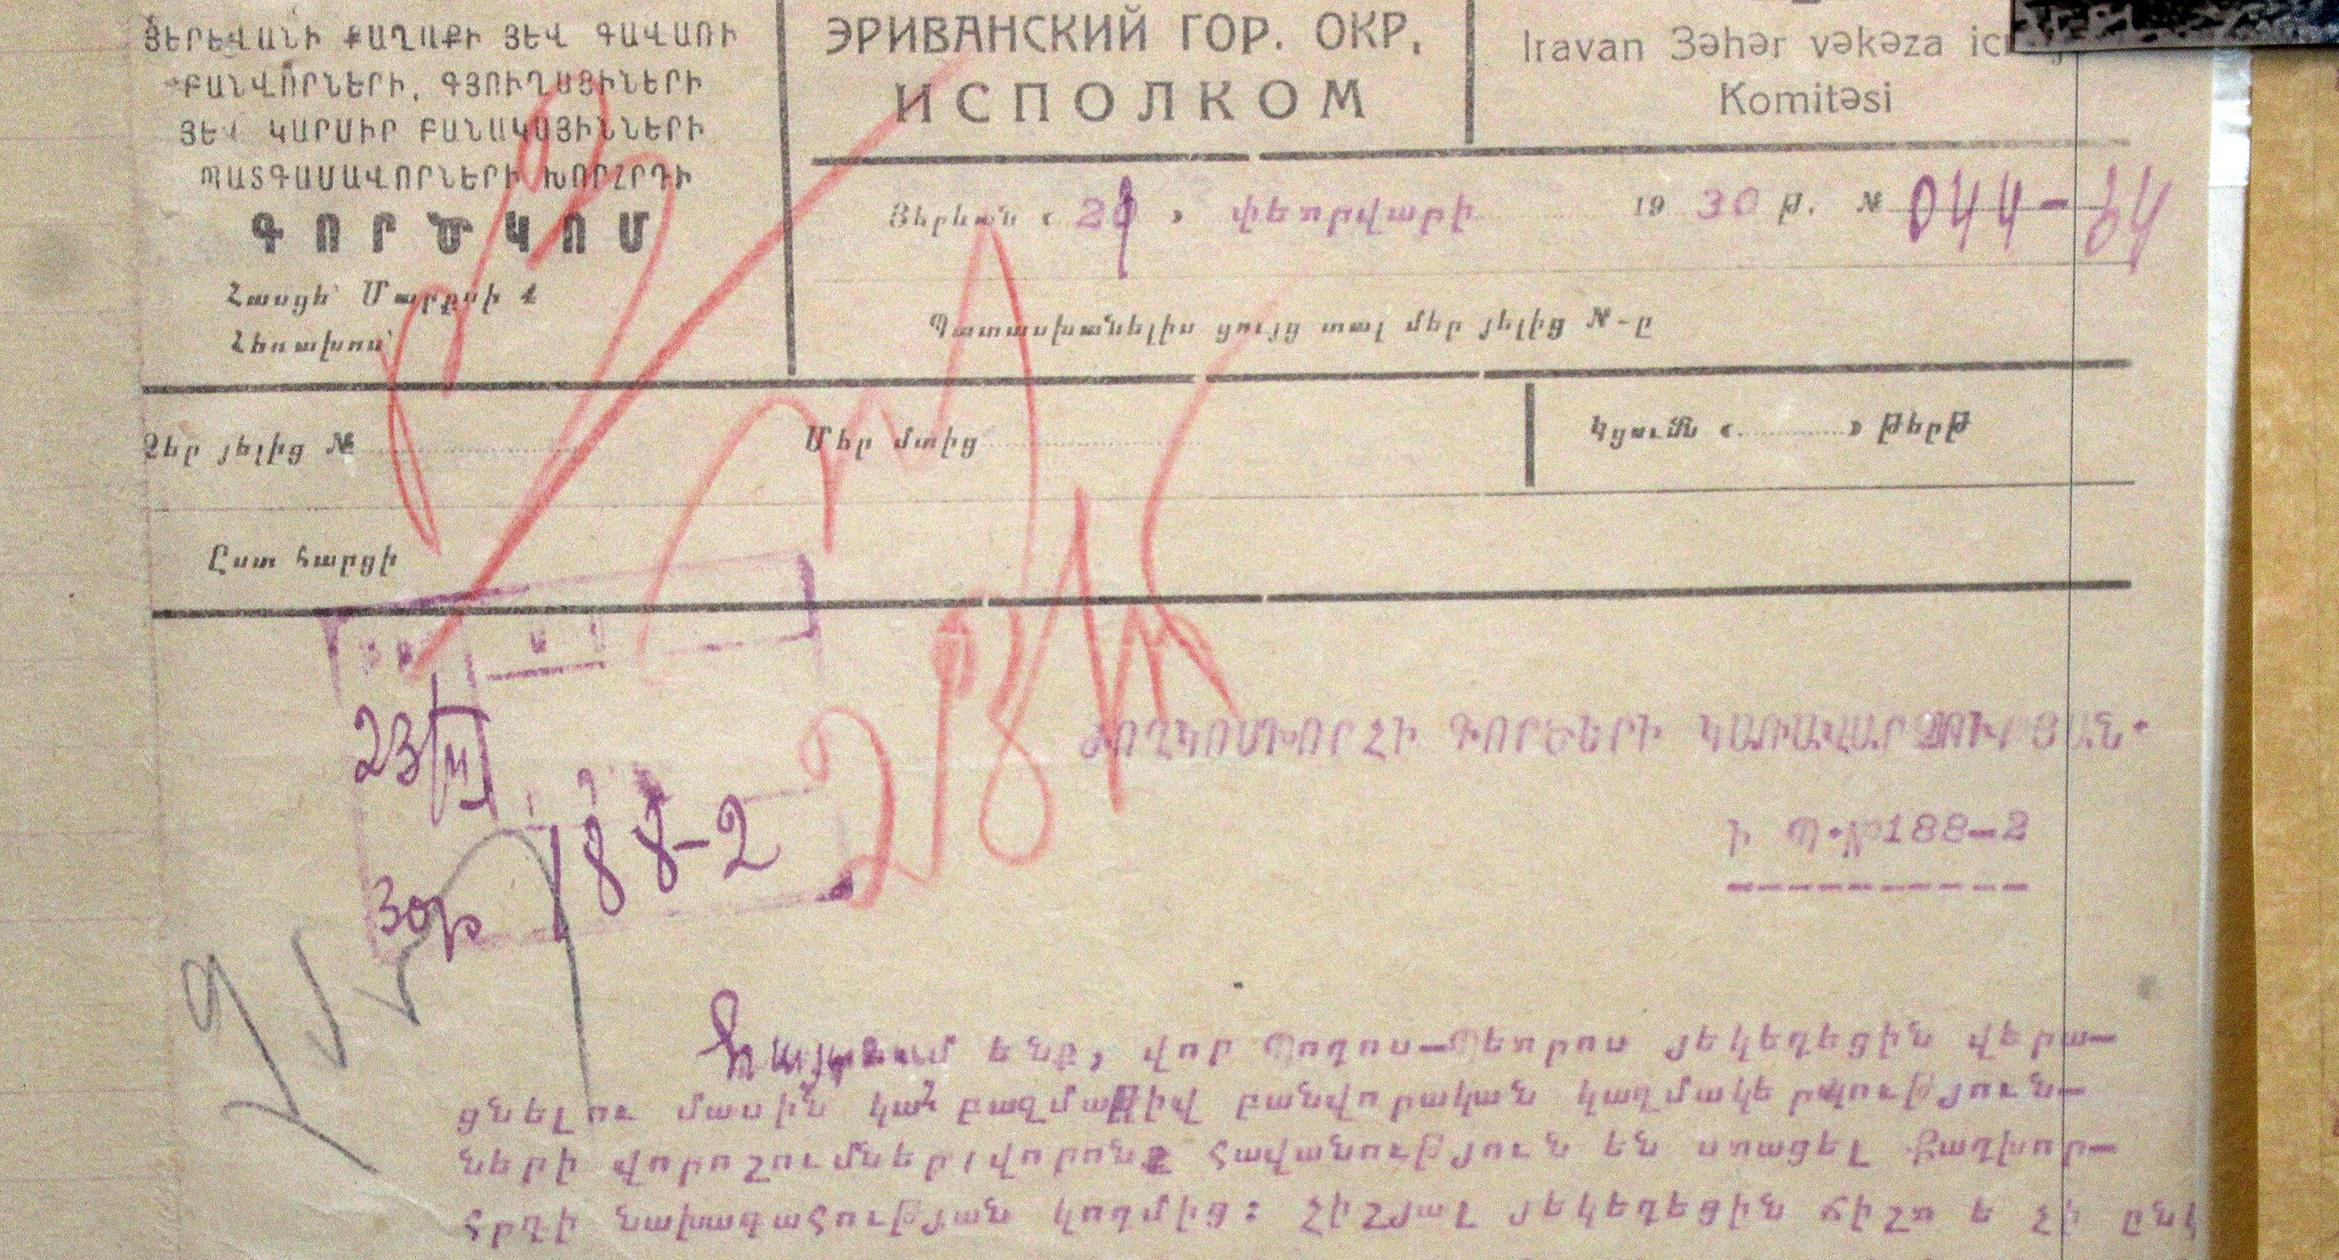 ՅԵՐԵՎԱՆԻ ՔԱՂԱՔԻ ՅԵՎ ԳԱՎԱՌԻ
ԲԱՆՎՈՐՆԵՐԻ, ԳՅՈՒՂԱՑԻՆԵՐԻ
ՅԵՎ ԿԱՐՄԻՐ ԲԱՆԱԿԱՅԻՆՆԵՐԻ
ՊԱՏԳԱՄԱՎՈՐՆԵՐԻ ԽՈՐՀՐԴԻ
ԳՈՐԾԿՈՄ
Հասցե՝ Մարքսի 4
Հեռախոս՝
ЭРИВАНСКИЙ ГОР. ОКР.
ИСПОЛКОМ
Iravan Зəhər vəkəza
Komitəsi
Յերևան « » փետրվարի 1930 թ. № 044-
Պատասխանելիս ցույց տալ մեր յելից №-ը
Ձեր յելից №
Մեր մտից
Կցումն « » թերթ
Ըստ հարցի
23
188-2
30թ
ԺՈՂԿՈՄԽՈՐՀԻ ԳՈՐԾԵՐԻ ԿԱՌԱՎԱՐՉՈՒԹՅԱՆ.
Ի Պ.№188-2
Հայտնում ենք, վոր Պողոս-Պետրոս յեկեղեցին վերա-
ցնելու մասին կան բազմաթիվ բանվորական կազմակերպություն-
ների վորոշումներ, վորոնք հավանություն են ստացել Քաղխոր-
հրդի նախագահության կողմից: Հիշյալ յեկեղեցին ճիշտ ե չի ընկ